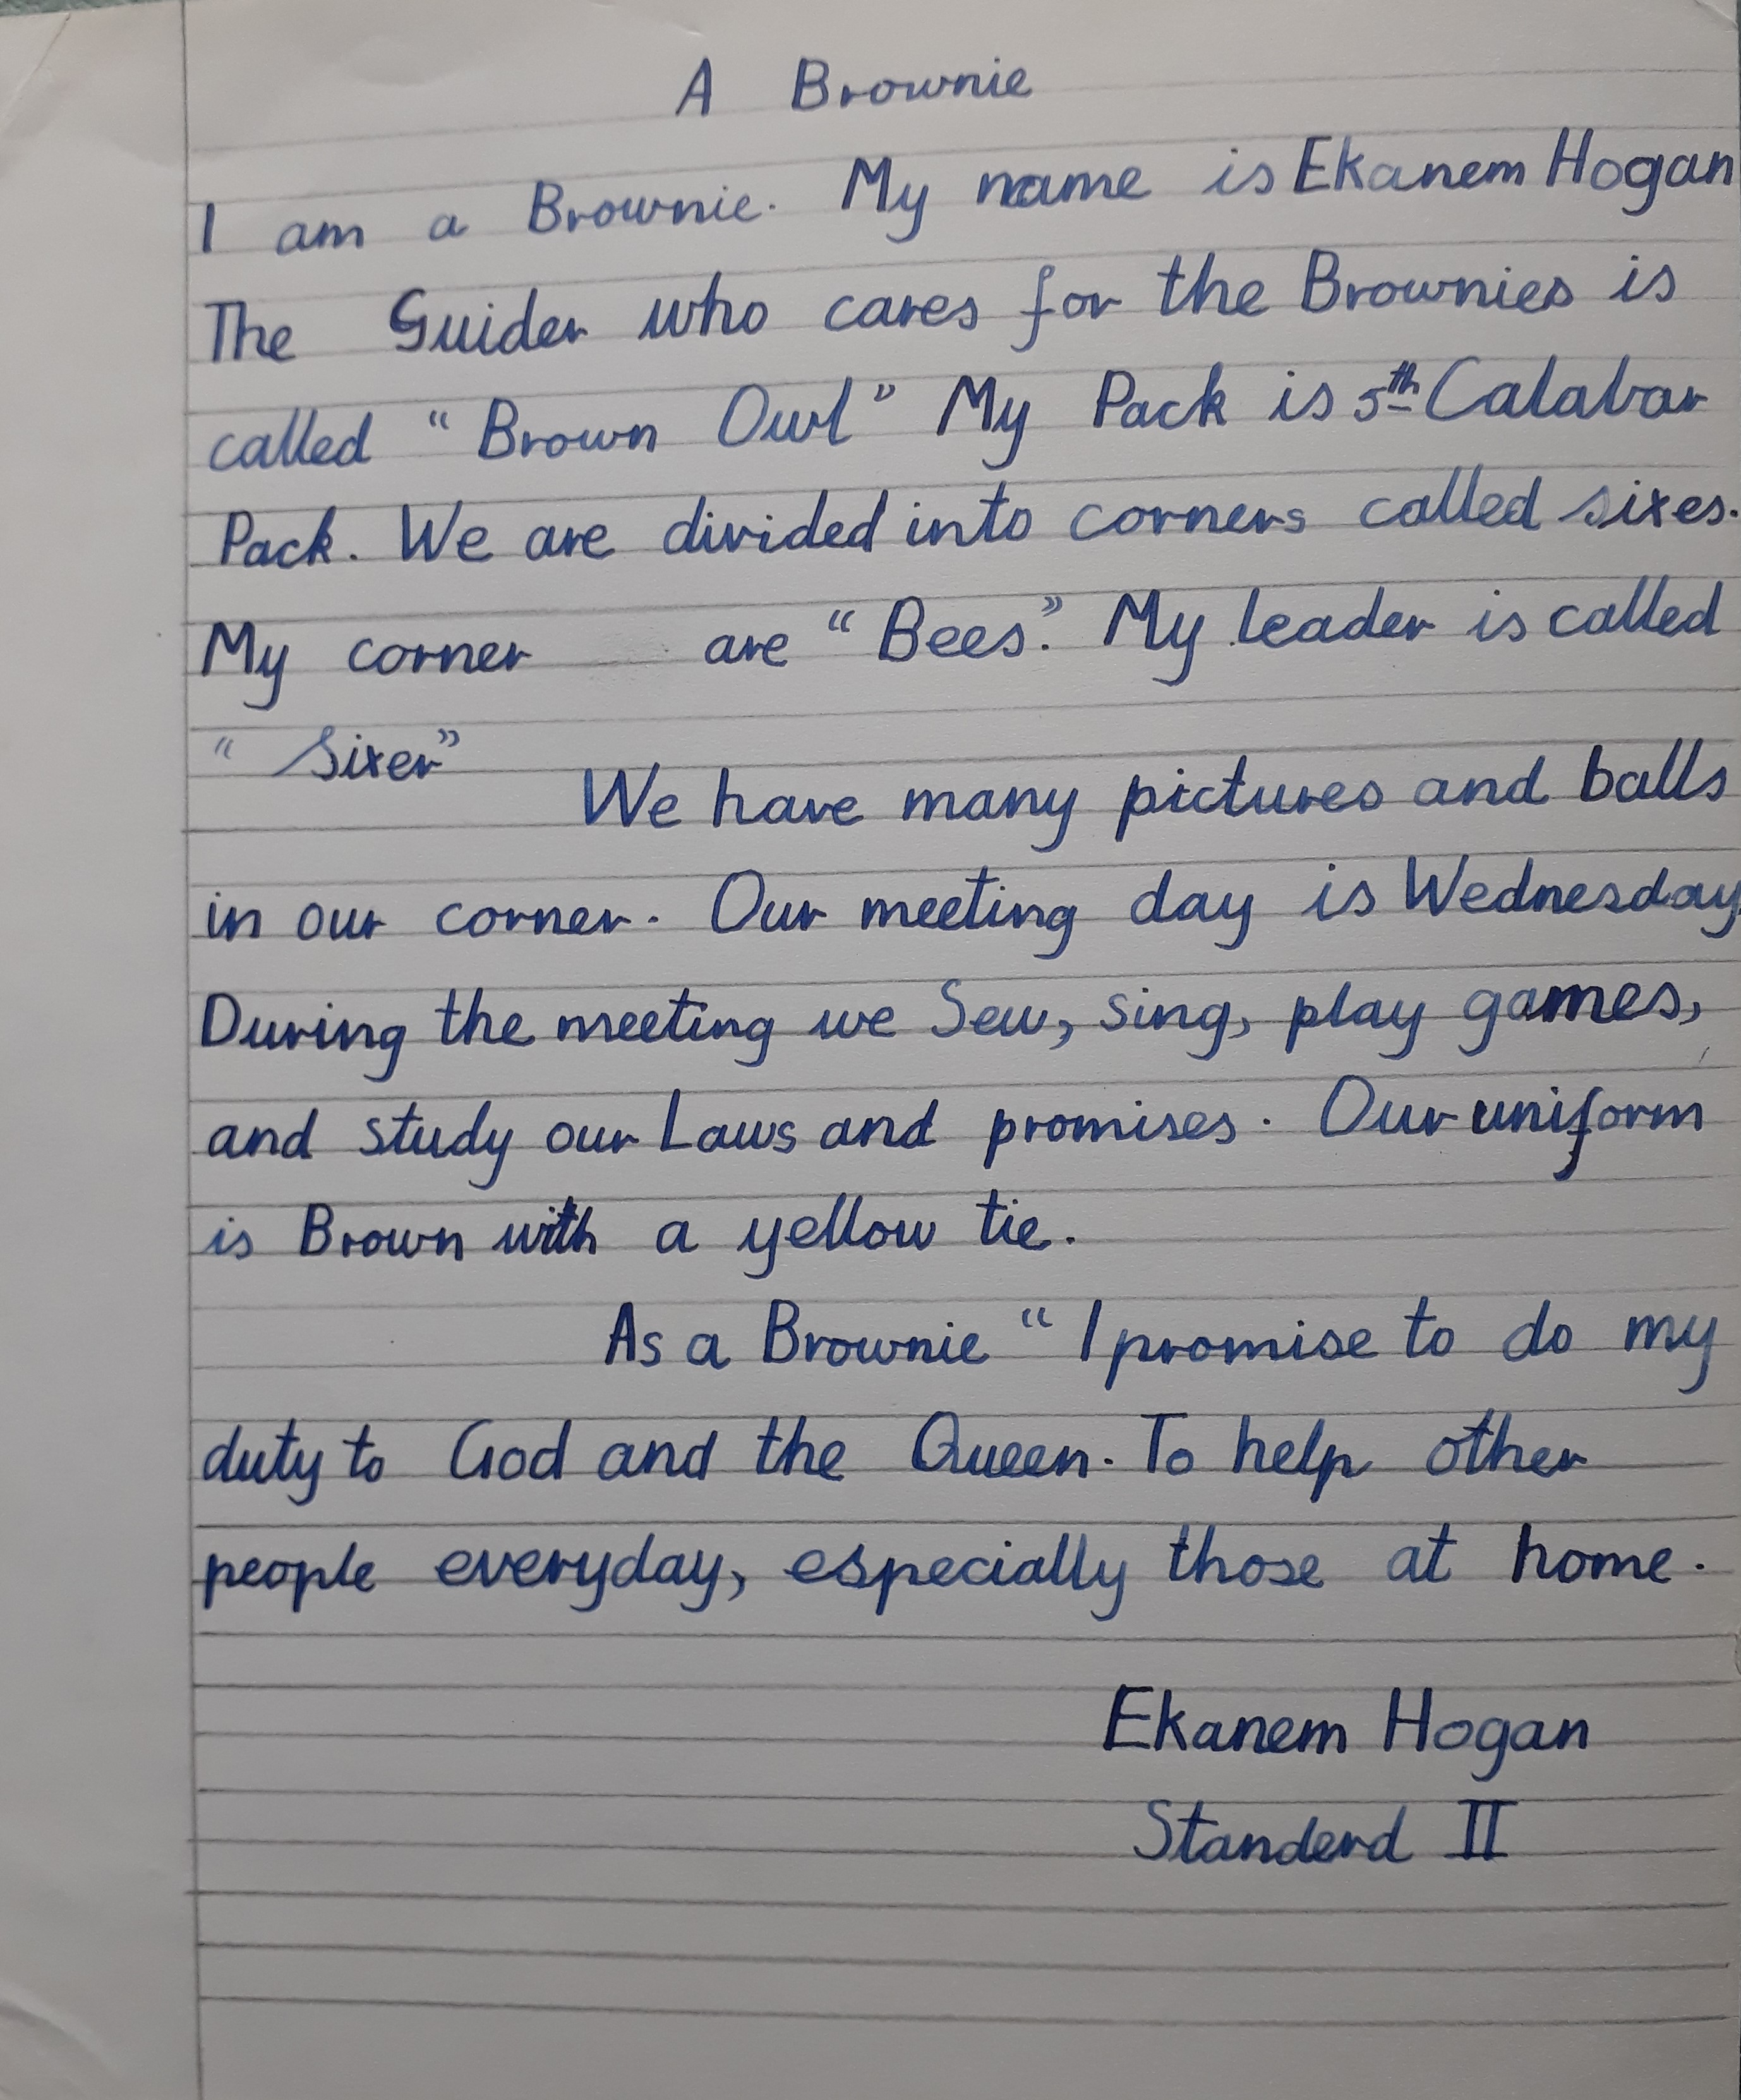 A Brownie
I am a Brownie. My name is Ekanem Hogan
The Guider who cares for the Brownies is
called “Brown Owl” My Pack is 5th Calabar
Pack. We are divided into corners called sixes.
My corner are “Bees”. My leader is called
“Sixer”
We have many pictures and balls
in our corner. Our meeting day is Wednesday
During the meeting we Sew, sing, play games,
and study our Laws and promises. Our uniform
is Brown with a yellow tie.
As a Brownie “I promise to do my
duty to God and the Queen. To help other
people everyday, especially those at home.
Ekanem Hogan
Standerd II